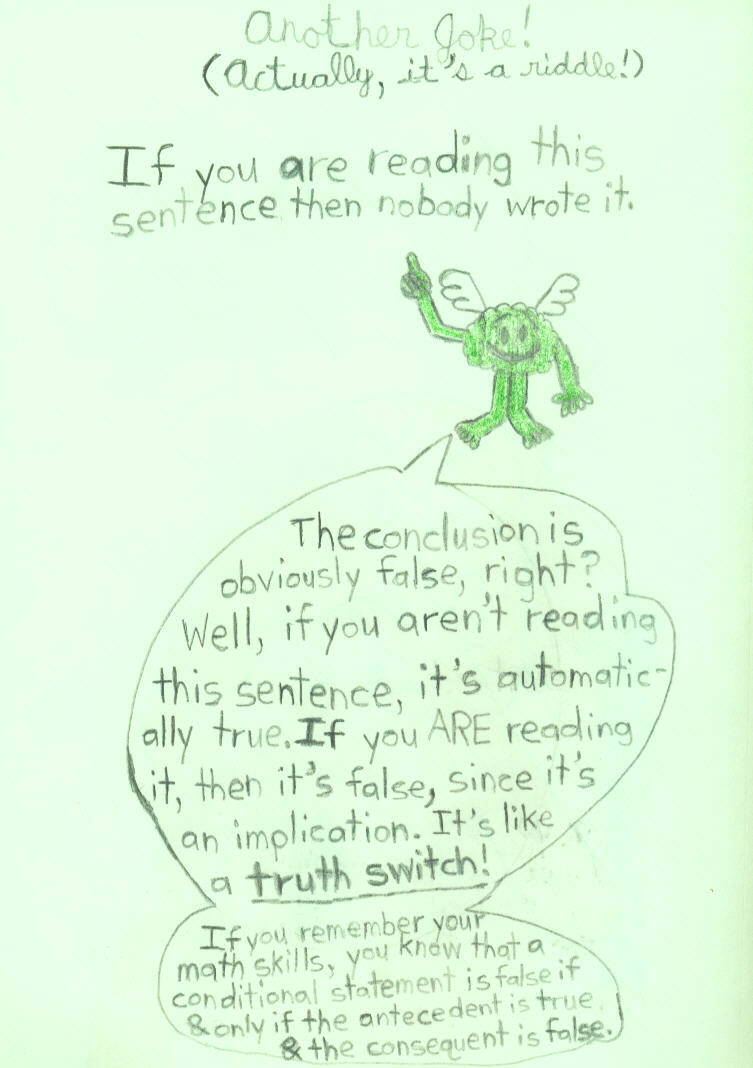 Another Joke!
(Actually, it's a riddle!)
If you are reading this
sentence then nobody wrote it.
The conclusion is
obviously false, right?
Well, if you aren't reading
this sentence, it's automatic-
ally true. If you ARE reading
it, then it's false, since it's
an implication. It's like
a truth switch!
If you remember your
math skills, you know that a
conditional statement is false if
& only if the antecedent is true
& the consequent is false.